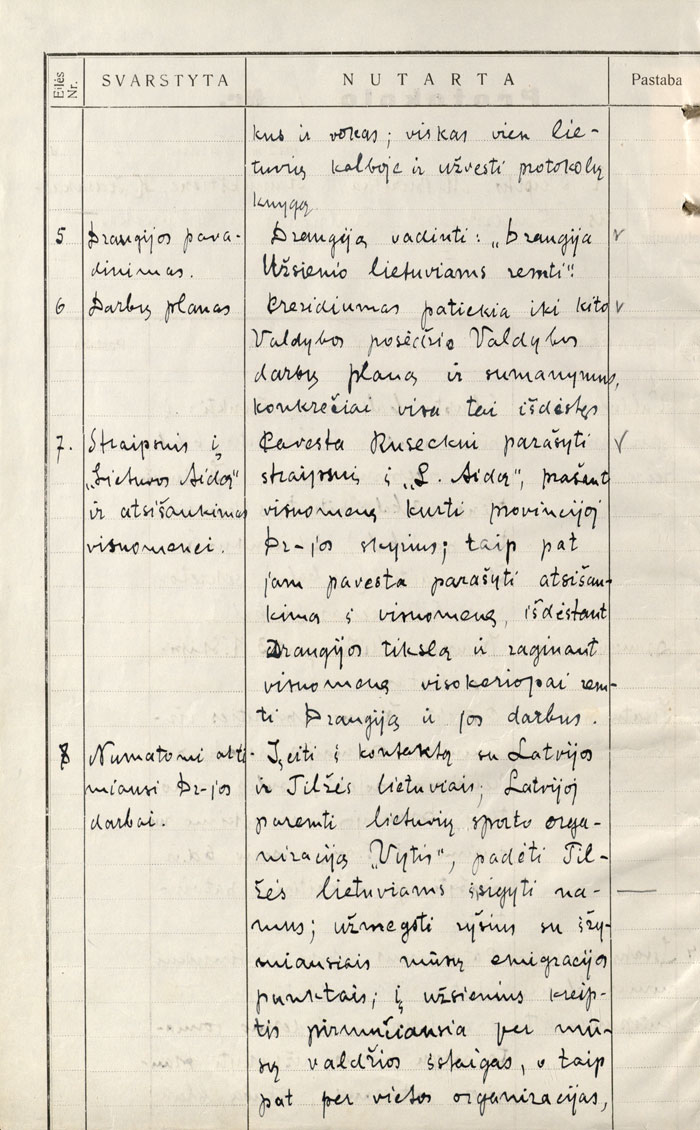 Eilės Nr.
SVARSTYTA
NUTARTA
Pastaba
kus ir vokas; viskas vien lie-
tuvių kalboje ir užvesti protokolų
knygą.
5
Draugijos pava-
dinimas.
Draugiją vadinti: „Draugija
Užsienio lietuviams remti".
v
6
Darbų planas
Prezidiumas patiekia iki kito
Valdybos posėdžio Valdybos
darbų planą ir sumanymus,
konkrečiai visa tai išdėstęs
v
7.
Straipsnis į
„Lietuvos Aidą"
ir atsišaukimas
visuomenei.
Pavesta Ruseckui parašyti
straipsnį į „L. Aidą", prašant
visuomenę kurti provincijoj
Dr-jos skyrius; taip pat
jam pavesta parašyti atsišau-
kimą į visuomenę, išdėstant
Draugijos tikslą ir raginant
visuomenę visokeriopai rem-
ti Draugiją ir jos darbus.
v
8
Numatomi arti-
miausi Dr-jos
darbai.
Įeiti į kontaktą su Latvijos
ir Tilžės lietuviais; Latvijoj
paremti lietuvių sporto orga-
nizaciją „Vytis", padėti Til-
žės lietuviams įsigyti na-
mus; užmegsti ryšius su žy-
miausiais mūsų emigracijos
punktais; į užsienius kreip-
tis pirmučiausia per mū-
sų valdžios įstaigas, o taip
pat per vietos organizacijas,